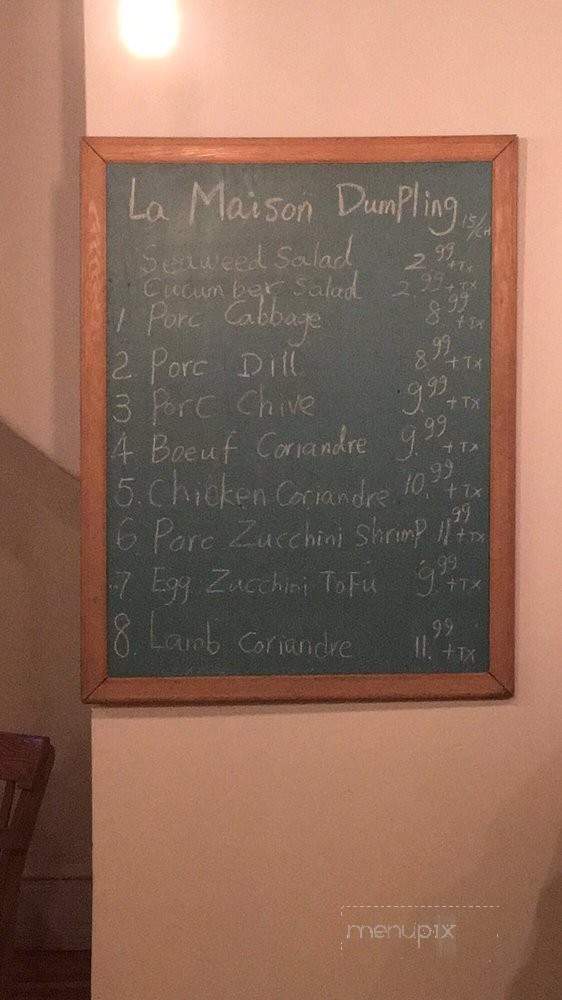 La Maison Dumpling 15/CH
Seaweed Salad 2.99+Tx
Cucumber Salad 2.99+Tx
1 Porc Cabbage 8.99+Tx
2 Porc Dill 8.99+Tx
3 Porc Chive 9.99+Tx
4 Boeuf Coriandre 9.99+Tx
5. Chicken Coriandre 10.99+Tx
6 Porc Zucchini Shrimp 11.99+Tx
7 Egg Zucchini Tofu 9.99+Tx
8. Lamb Coriandre 11.99+Tx
menupix